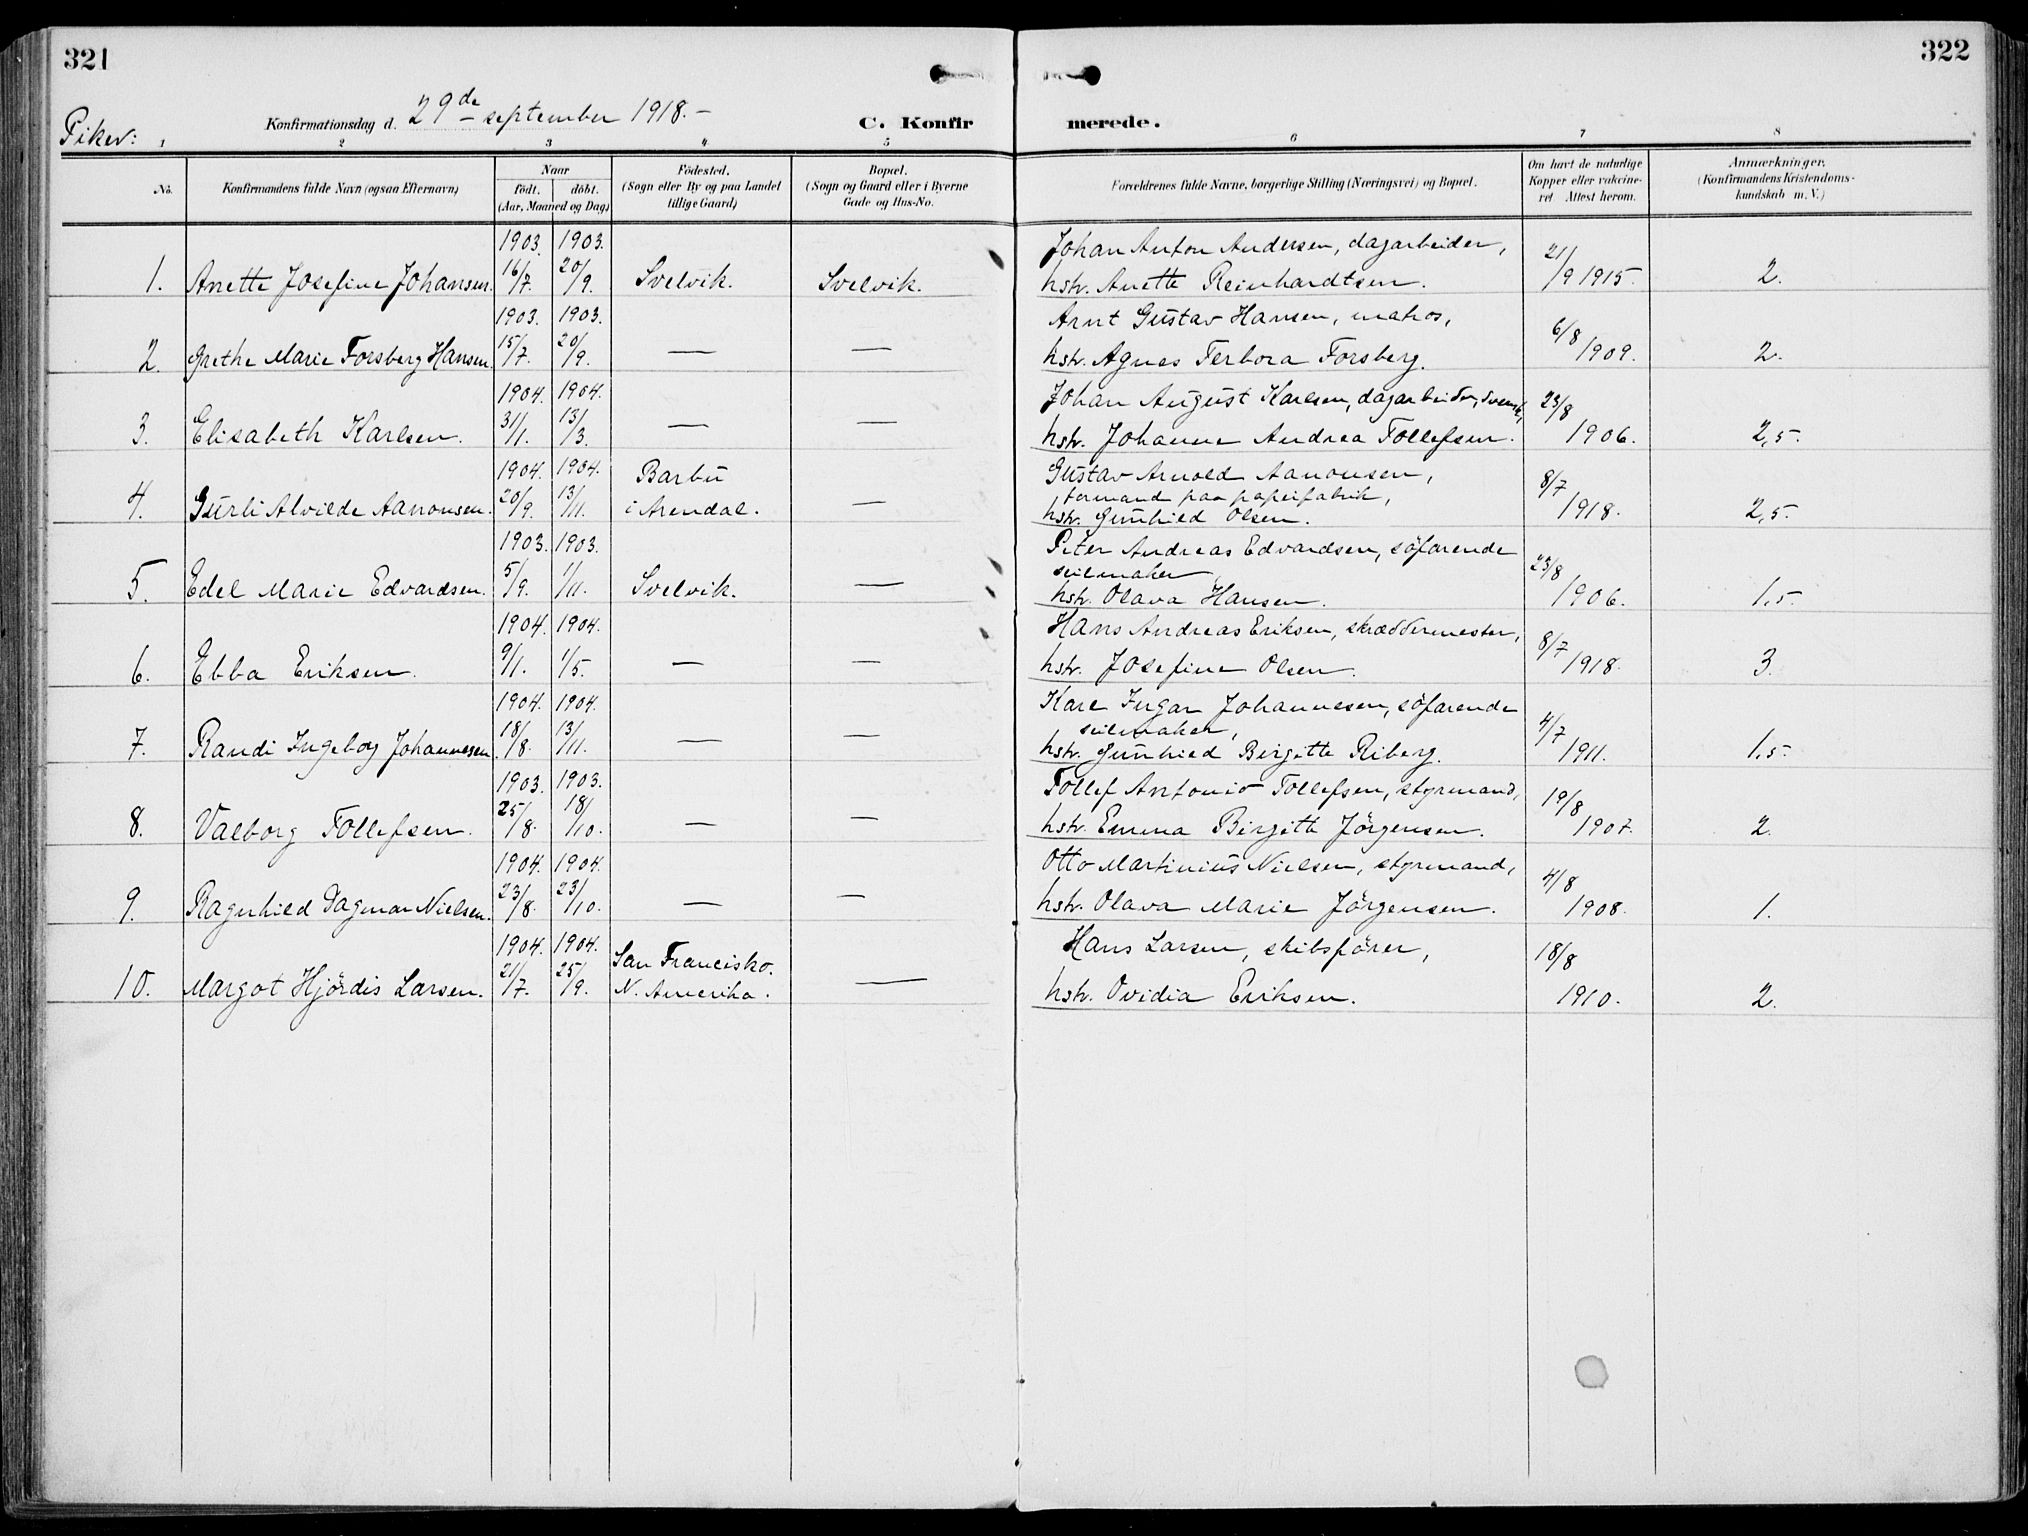 321
322
Piker:
Konfirmationsdag d. 29de september 1918. –
C. Konfir
merede.
1 2 3 4 5 6 7 8
No. Konfirmandens fulde Navn (ogsaa Efternavn) Naar födt. döbt. (Aar, Maaned og Dag) Födested. (Sogn eller By og paa Landet tillige Gaard) Bopæl. (Sogn og Gaard eller i Byerne Gade og Hus-No. Forældrenes fulde Navne, borgerlige Stilling (Næringsvei) og Bopæl. Om havt de naturlige Kopper eller vakcineret. Attest herom. Anmærkninger. (Konfirmandens Kristendomskundskab m. V.)
1903. 1903. Johan Anton Andersen, dagarbeider,
1. Anette Josefine Johansen. 16/7. 20/9. Svelvik. Svelvik. hstr. Anette Reinhardtsen. 21/9 1915. 2.
1903. 1903. Arnt Gustav Hansen, matros,
2. Grethe Marie Forsberg Hansen. 15/7. 20/9. — — hstr. Agnes Terbora Forsberg. 6/8 1909. 2.
1904. 1904. Johan August Karlsen, dagarbeider, svensk,
3. Elisabeth Karlsen. 31/1. 13/3. — — hstr. Johanne Andrea Tollefsen. 23/8 1906. 2,5.
1904. 1904. Barbu Gustav Arnold Aanonsen,
formand paa papirfabrik,
4. Gurli Alvilde Aanonsen. 20/9. 13/11. i Arendal. — hstr. Gunhild Olsen. 8/7 1918. 2,5.
1903. 1903. Peter Andreas Edvardsen, söfarende
seilmaker,
5. Edel Marie Edvardsen. 5/9. 1/11. Svelvik. — hstr. Olava Hansen. 23/8 1906. 1,5.
1904. 1904. Hans Andreas Eriksen, skræddermester,
6. Ebba Eriksen. 9/1. 1/5. — — hstr. Josefine Olsen. 8/7 1918. 3.
1904. 1904. Karl Ingar Johannesen, söfarende
seilmaker,
7. Randi Ingeborg Johannesen. 18/8. 13/11. — — hstr. Gunhild Birgitte Riberg. 4/7 1911. 1,5.
1903. 1903. Tollef Antonio Tollefsen, styrmand,
8. Valborg Tollefsen. 25/8. 18/10. — — hstr. Emma Birgith Jörgensen. 19/8 1907. 2.
1904. 1904. Otto Martinius Nielsen, styrmand,
9. Ragnhild Dagmar Nielsen. 23/8. 23/10. — — hstr. Olava Marie Jörgensen. 4/8 1908. 1.
1904. 1904. San Francisko. Hans Larsen, skibsförer,
10. Margot Hjördis Larsen. 21/7. 25/9. N. Amerika. — hstr. Ovidia Eriksen. 18/8 1910. 2.